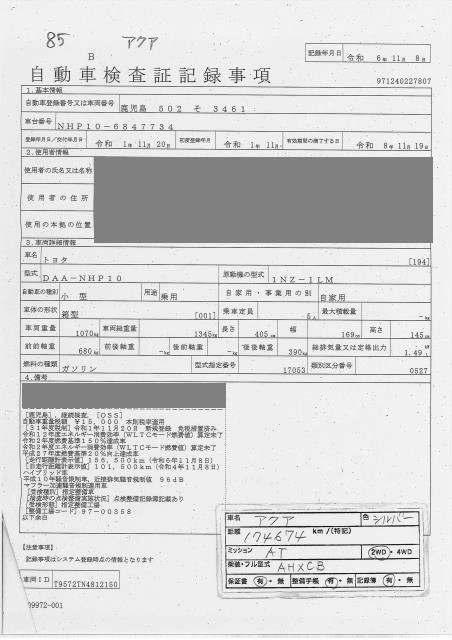 85 アクア
記録年月日 令和 6年11月 8日
B
自動車検査証記録事項
971240227807
1.基本情報
自動車登録番号又は車両番号 鹿児島 502 そ 3461
車台番号 NHP10-6847734
登録年月日/交付年月日 令和 1年11月20日 初度登録年月 令和 1年11月 有効期間の満了する日 令和 8年11月19日
2.使用者情報
使用者の氏名又は名称
使用者の住所
使用の本拠の位置
3.車両詳細情報
車名 トヨタ [194]
型式 DAA-NHP10 原動機の型式 1NZ-1LM
自動車の種別 小型 用途 乗用 自家用・事業用の別 自家用
車体の形状 箱型 [001] 乗車定員 5人 最大積載量 -kg
車両重量 1070kg 車両総重量 1345kg 長さ 405cm 幅 169cm 高さ 145cm
前前軸重 680kg 前後軸重 -kg 後前軸重 -kg 後後軸重 390kg 総排気量又は定格出力 1.49L
燃料の種類 ガソリン 型式指定番号 17053 類別区分番号 0527
4.備考
[鹿児島],継続検査,[OSS]
自動車重量税額 ¥15,000 本則税率適用
[31年度税制]令和1年11月20日 新規登録 免税措置済み
令和12年度エネルギー消費効率(WLTCモード燃費値)算定未了
令和2年度燃費基準150%達成車
令和2年度エネルギー消費効率(WLTCモード燃費値)算定未了
平成27年度燃費基準20%向上達成車
[走行距離計表示値]156,500km(令和6年11月8日)
[旧走行距離計表示値]101,500km(令和4年11月8日)
ハイブリッド車
平成10年騒音規制車,近接排気騒音規制値 96dB
マフラー加速騒音規制適用車
[受検種別]指定整備車
[検査時の点検整備実施状況]点検整備記録簿記載あり
[受検形態]指定整備工場
[整備工場コード]97-00358
以下余白
【注意事項】
記録事項はシステム登録時点の情報となります
車両ID T9572TN4812150
09972-001
車名 アクア 色 シルバー
距離 174674 km/(特記)
ミッション AT 2WD・4WD
架装・フル型式 AHXCB
保証書 有・無 整備手帳 有・無 記録簿 有・無